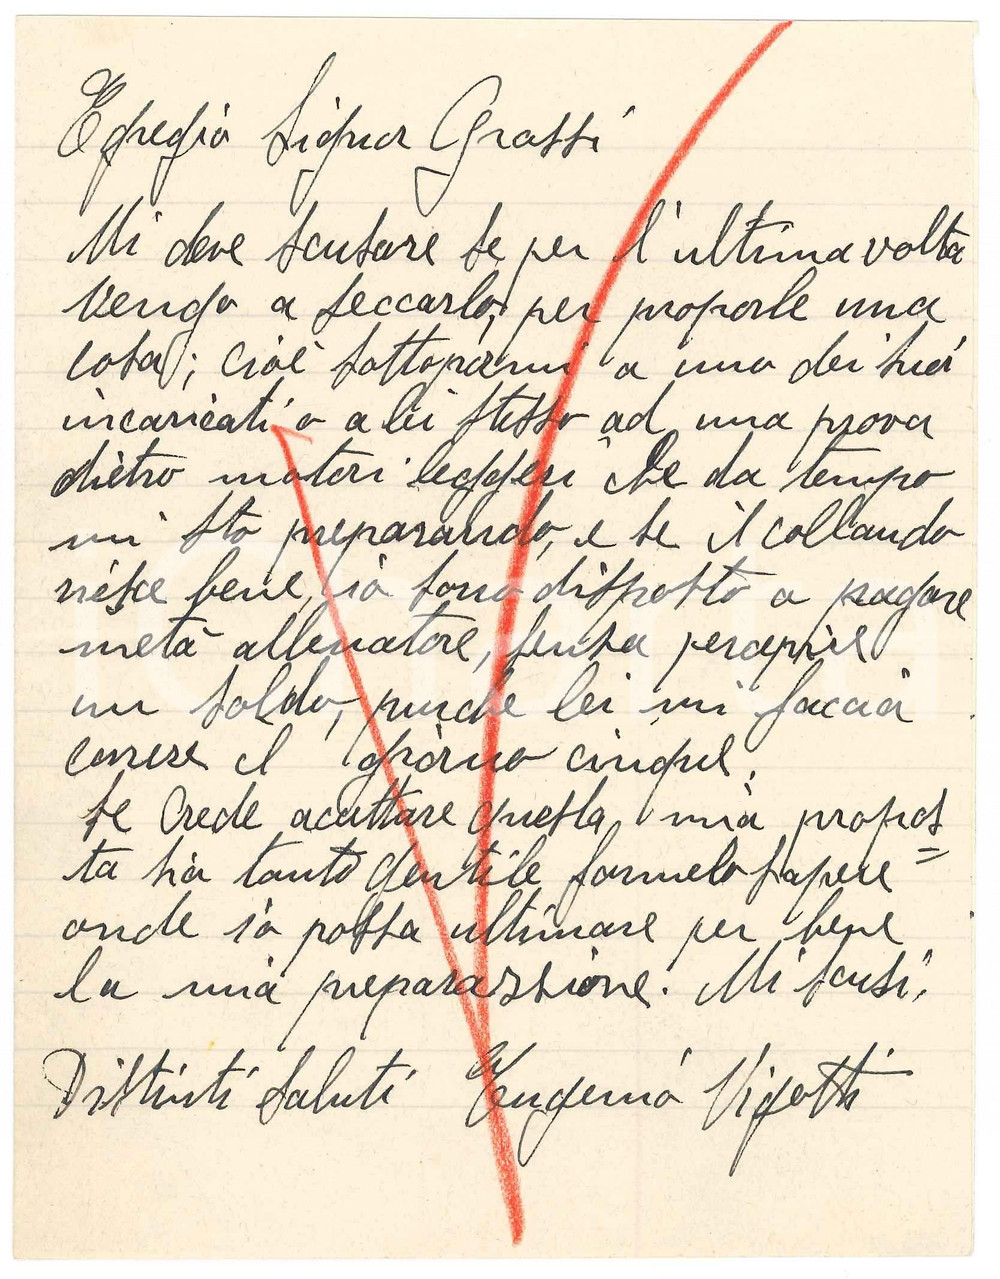 Egregio Signor Grassi
Mi deve scusare se per l'ultima volta
vengo a seccarlo, per proporle una
cosa; cioè sottopormi a uno dei suoi
incaricati o a lei stesso ad una prova
dietro motori leggeri che da tempo
mi sto preparando, e se il collaudo
riesce bene, io sono disposto a pagare
metà allenatore, senza percepire
un soldo, purche lei mi faccia
correre il giorno cinque.
Se crede accettare questa mia propos
ta sia tanto gentile farmelo sapere =
onde io possa ultimare per bene
la mia preparazzione. Mi scusi,
Distinti saluti Eugenio Vigotti